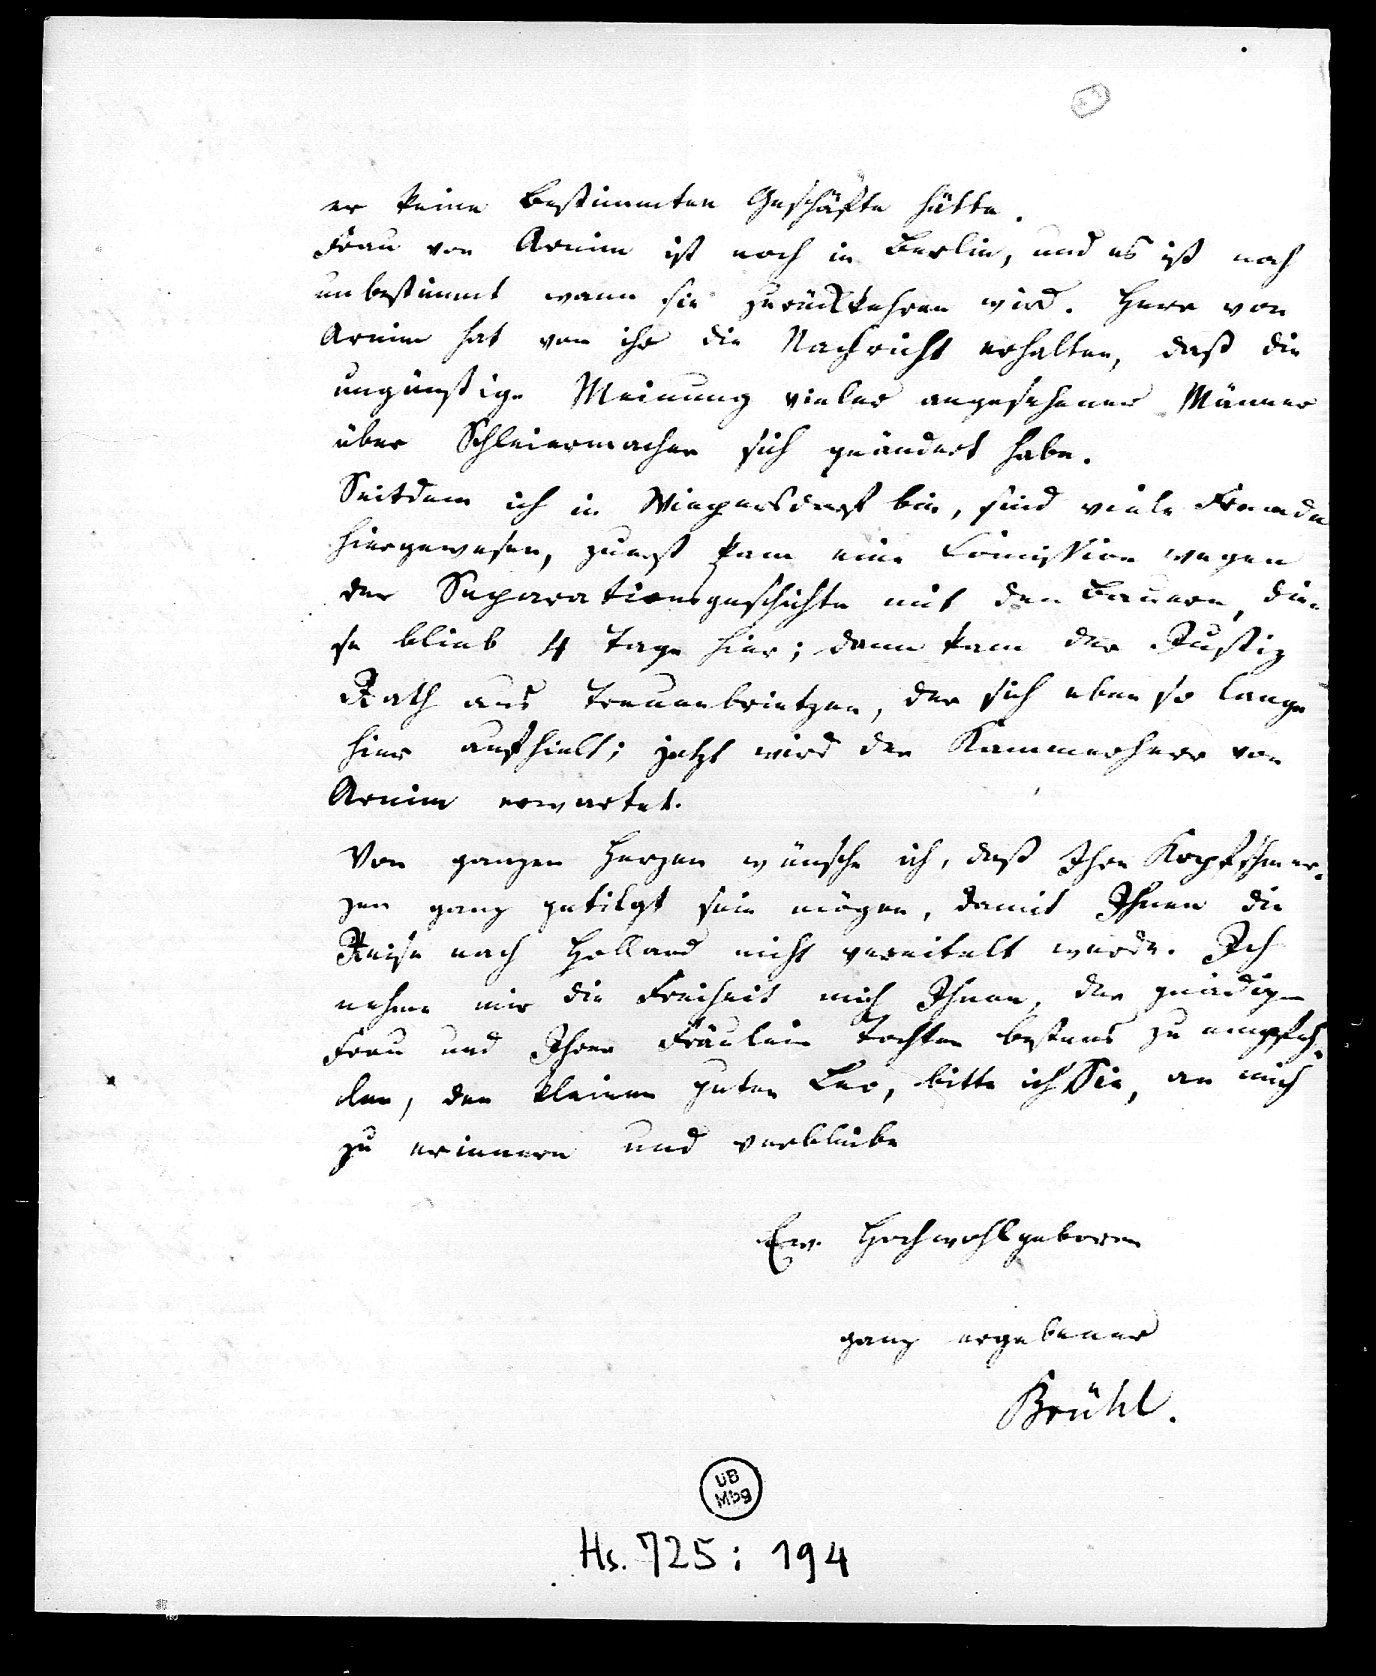 er keine bestimmten Geschäfte hätte.
Frau von Arnim ist noch in Berlin, und es ist noch
unbestimmt wann sie zurückkehren wird. Herr von
Arnim hat von ihr die Nachricht erhalten, daß die
ungünstige Meinung vieler angesehener Männer
über Schleiermacher sich geändert habe.
Seitdem ich in Wiepersdorf bin, sind viele Fremde
hiergewesen, zuerst kam eine Comission wegen
der Separationsgeschichte mit den Bauern, die-
se blieb 4 Tage hier; dann kam der Justiz
Rath aus Treuenbrietzen, der sich eben so lange
hier aufhielt; jetzt wird der Kammerherr von
Arnim erwartet.
Von ganzen Herzen wünsche ich, daß Ihre Kopfschmer-
zen ganz getilgt sein mögen, damit Ihnen die
Reise nach Holland nicht vereitelt werde. Ich
nehme mir die Freiheit mich Ihnen, der gnädigen
Frau und Ihrer Fräulein Tochter bestens zu empfeh-
len, den kleinen guten Leo, bitte ich Sie, an mich
zu erinnern und verbleibe
Ew. Hochwohlgeboren
ganz ergebener
Brühl.
UB
Mbg
Hs. 725: 194